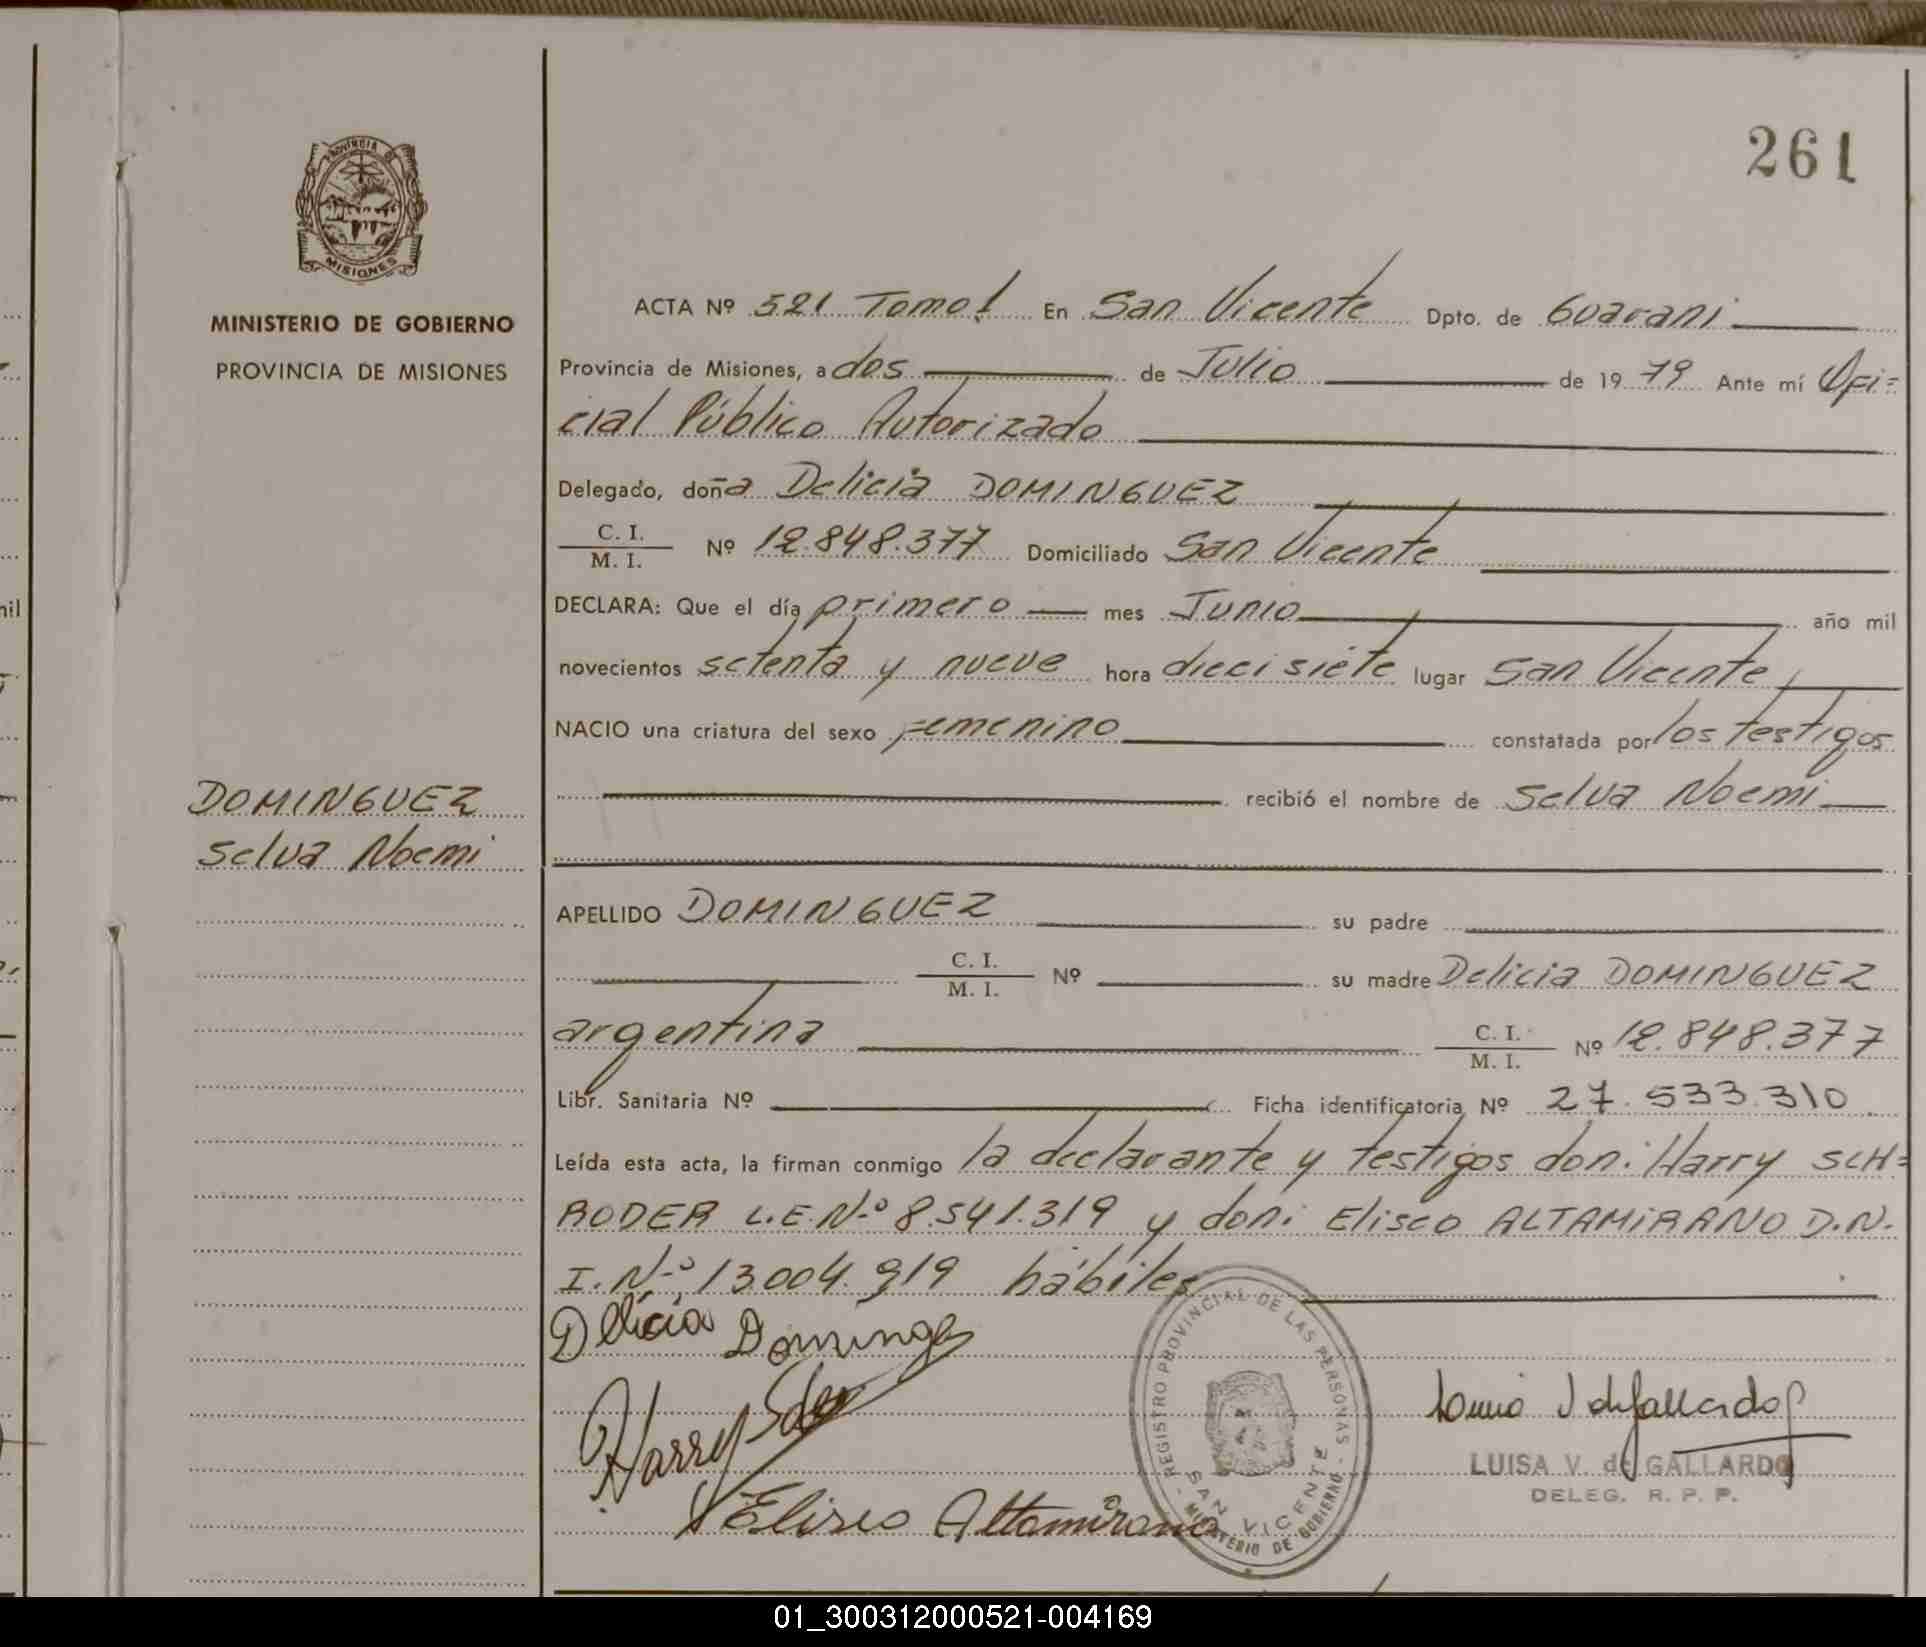 261
PROVINCIA DE
MISIONES
MINISTERIO DE GOBIERNO
PROVINCIA DE MISIONES
DOMINGUEZ
Selva Noemi
ACTA Nº 521 Tomo I En San Vicente Dpto. de Guarani
Provincia de Misiones, a dos de Julio de 19 79 Ante mí Ofi=
cial Público Autorizado
Delegado, doña Delicia DOMINGUEZ
C. I.
M. I. Nº 12.848.377 Domiciliado San Vicente
DECLARA: Que el día primero mes Junio año mil
novecientos setenta y nueve hora diecisiete lugar San Vicente
NACIO una criatura del sexo Femenino constatada por los testigos
recibió el nombre de Selva Noemi
APELLIDO DOMINGUEZ su padre
C. I.
M. I. Nº su madre Delicia DOMINGUEZ
argentina C. I.
M. I. Nº 12.848.377
Libr. Sanitaria Nº Ficha identificatoria Nº 27.533.310
Leída esta acta, la firman conmigo la declarante y testigos don: Harry SCH=
RODER L.E.N.º 8.541.319 y don: Eliseo ALTAMIRANO D.N.
I. N.º 13.004.919 hábiles
Delicia Doming
Harry
Eliseo Altamirano
REGISTRO PROVINCIAL DE LAS PERSONAS
- MINISTERIO DE GOBIERNO -
SAN VICENTE
LUISA V. de GALLARDO
DELEG. R. P. P.
01_300312000521-004169